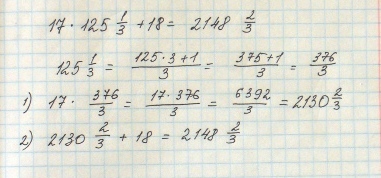 17 · 125 1/3 + 18 = 2148 2/3
125 1/3 = 125 · 3 + 1/3 = 375 + 1/3 = 376/3
1) 17 · 376/3 = 17 · 376/3 = 6392/3 = 2130 2/3
2) 2130 2/3 + 18 = 2148 2/3